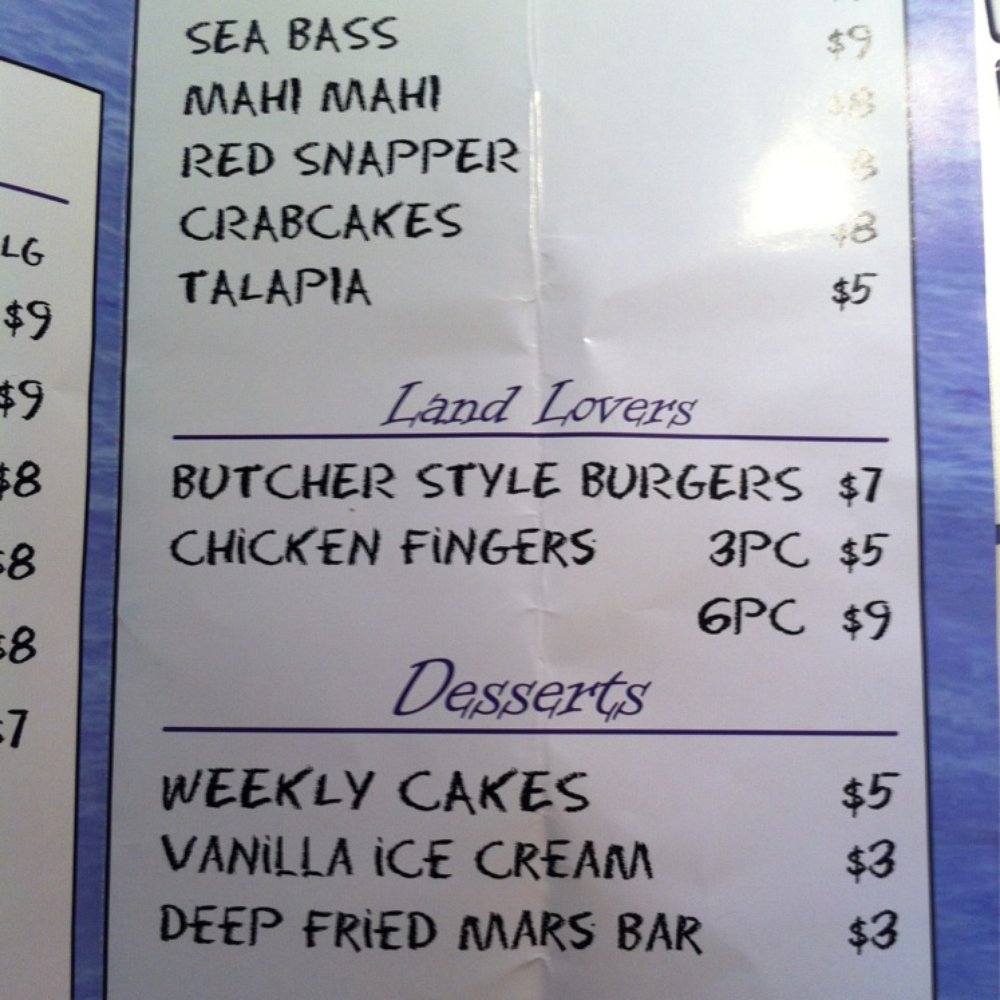 SEA BASS $9
MAHI MAHI $8
RED SNAPPER 8
CRABCAKES $8
TALAPIA $5
Land Lovers
BUTCHER STYLE BURGERS $7
CHiCKEN FiNGERS 3PC $5
6PC $9
Desserts
WEEKLY CAKES $5
VANiLLA iCE CREAM $3
DEEP FRiED MARS BAR $3
LG
$9
$9
$8
$8
$8
$7